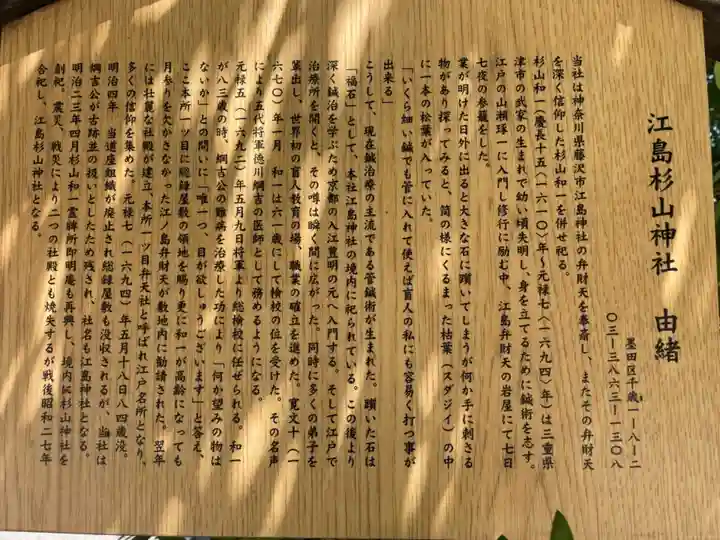 江島杉山神社　由緒
墨田区千歳一ー八ー二
〇三ー三八六三ー一三〇八
当社は神奈川県藤沢市江島神社の弁財天を奉斎し、またその弁財天
を深く信仰した杉山和一を併せ祀る。
杉山和一(慶長十五(一六一〇)年～元禄七(一六九四)年)は三重県
津市の武家の生まれで幼い頃失明し、身を立てるために鍼術を志す。
江戸の山瀬琢一に入門し修行に励む中、江島弁財天の岩屋にて七日
七夜の参籠をした。
業が明けた日外に出ると大きな石に躓いてしまうが何か手に刺さる
物があり探ってみると、筒の様にくるまった枯葉(スダジイ)の中
に一本の松葉が入っていた。
「いくら細い鍼でも管に入れて使えば盲人の私にも容易く打つ事が
出来る」
こうして、現在鍼治療の主流である管鍼術が生まれた。躓いた石は
「福石」として、本社江島神社の境内に祀られている。この後より
深く鍼治を学ぶため京都の入江豊明の元へ入門する。そして江戸で
治療所を開くと、その噂は瞬く間に広がった。同時に多くの弟子を
輩出し、世界初の盲人教育の場、職業の確立を進めた。寛文十(一
六七〇)年一月　和一は六一歳にして検校の位を受けた。その名声
により五代将軍徳川綱吉の医師として務めるようになる。
元禄五(一六九二)年五月九日将軍より総検校に任ぜられる。和一
が八三歳の時、綱吉公の難病を治療した功により「何か望みの物は
ないか」との問いに「唯一つ、目が欲しゅうございます」と答え、
ここ本所一ツ目に総録屋敷の領地を賜り更に和一が高齢になっても
月参りを欠かさなかった江ノ島弁財天が敷地内に勧請された。翌年
には壮麗な社殿が建立、本所一ツ目弁天社と呼ばれ江戸名所となり、
多くの信仰を集めた。元禄七(一六九四)年五月十八日八四歳没。
明治四年　当道座組織が廃止され総録屋敷も没収されるが、当社は
綱吉公が古跡並の扱いとしたため残され、社名も江島神社となる。
明治二三年四月杉山和一霊牌所即明庵も再興し、境内に杉山神社を
創祀。震災、戦災により二つの社殿とも焼失するが戦後昭和二七年
合祀し、江島杉山神社となる。